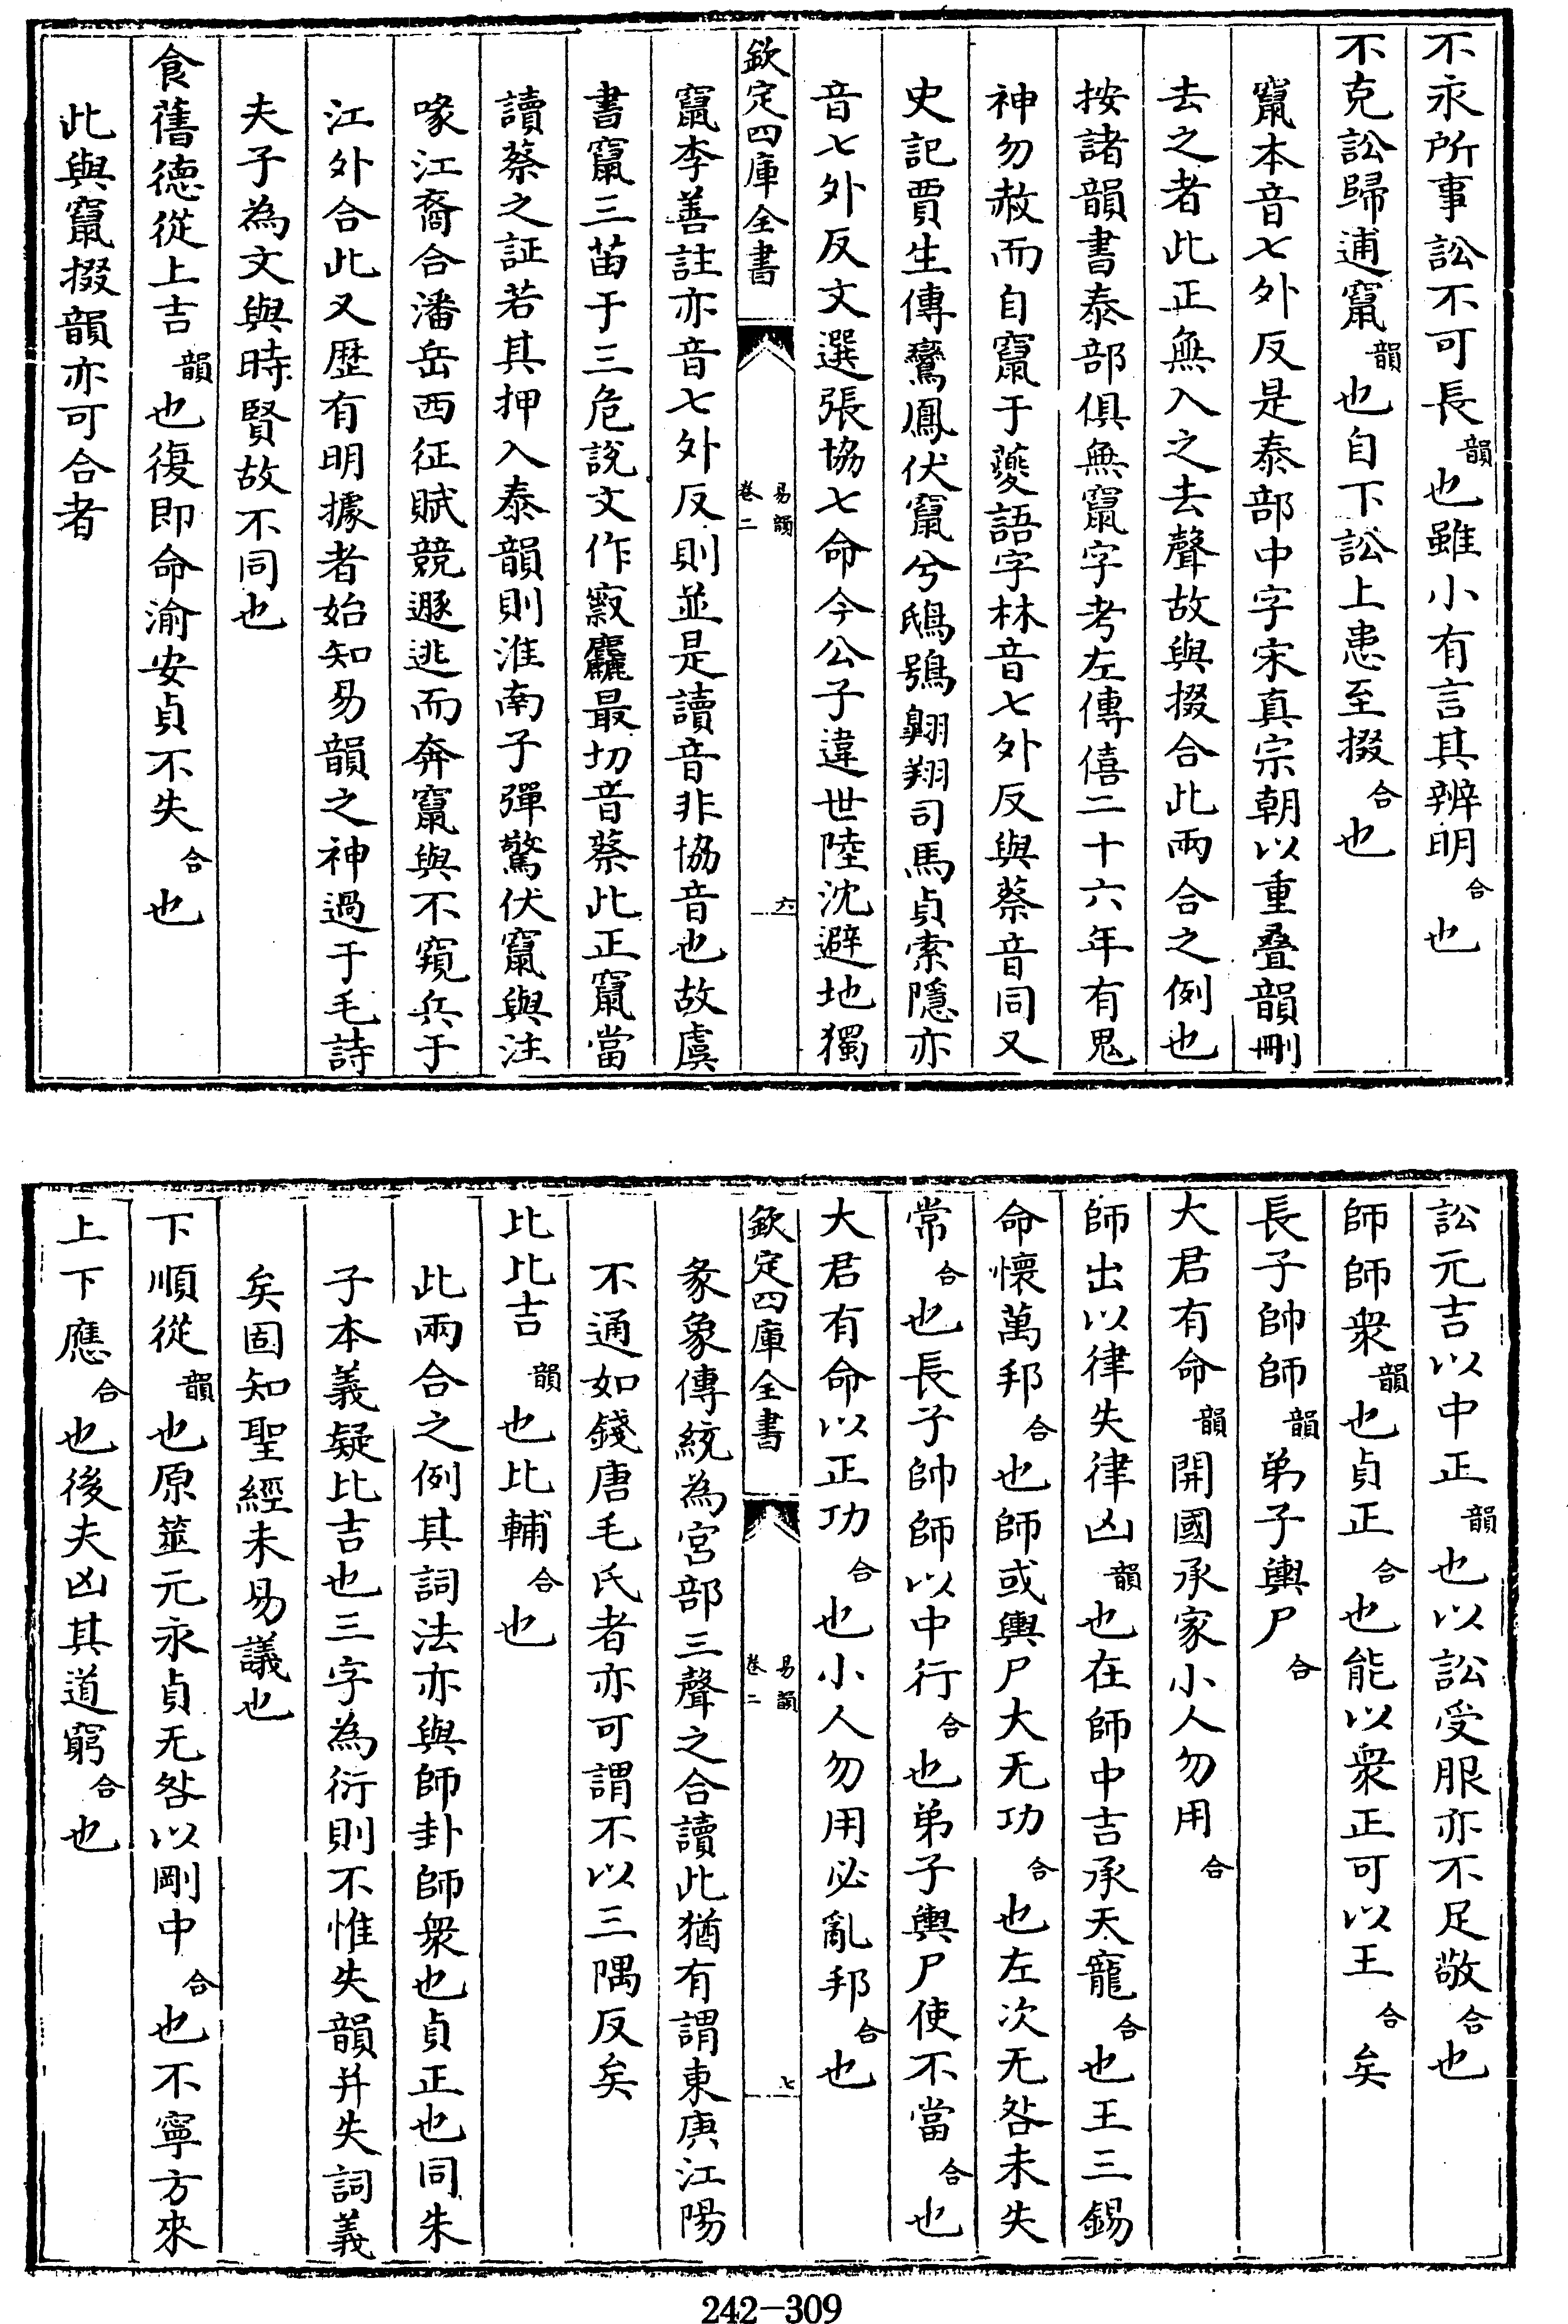 不永所事訟不可長韻也雖小有言其辨明合也
不克訟歸逋竄韻也自下訟上患至掇合也
竄本音七外反是泰部中字宋真宗朝以重疊韻刪
去之者此正無入之去聲故與掇合此兩合之例也
按諸韻書泰部俱無竄字考左傳僖二十六年有鬼
神勿赦而自竄于夔語字林音七外反與蔡音同又
史記賈生傳鸞鳳伏竄兮鴟鴞翺翔司馬貞索隱亦
音七外反文選張協七命今公子違世陸沈避地獨
欽定四庫全書
易韻
卷二
六
竄李善註亦音七外反則並是讀音非協音也故虞
書竄三苗于三危說文作㝮麤最切音蔡此正竄當
讀蔡之証若其押入泰韻則淮南子彈驚伏竄與注
喙江裔合潘岳西征賦競遯逃而奔竄與不窺兵于
江外合此又歴有明據者始知易韻之神過于毛詩
夫子為文與時賢故不同也
食舊德從上吉韻也復即命渝安貞不失合也
此與竄掇韻亦可合者
訟元吉以中正韻也以訟受服亦不足敬合也
師師衆韻也貞正合也能以衆正可以王合矣
長子帥師韻弟子輿尸合
大君有命韻開國承家小人勿用合
師出以律失律凶韻也在師中吉承天寵合也王三錫
命懷萬邦合也師或輿尸大无功合也左次无咎未失
常合也長子帥師以中行合也弟子輿尸使不當合也
大君有命以正功合也小人勿用必亂邦合也
欽定四庫全書
易韻
卷二
七
彖象傳統為宮部三聲之合讀此猶有謂東庚江陽
不通如錢唐毛氏者亦可謂不以三隅反矣
比比吉韻也比輔合也
此兩合之例其詞法亦與師卦師衆也貞正也同朱
子本義疑比吉也三字為衍則不惟失韻并失詞義
矣固知聖經未易議也
下順從韻也原筮元永貞无咎以剛中合也不寧方來
上下應合也後夫凶其道窮合也
242-309